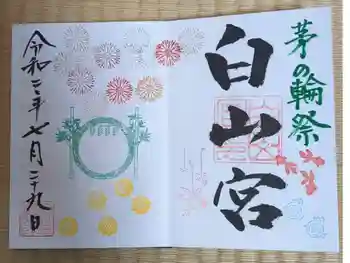 茅の輪祭
白山宮
令和二年七月二十九日